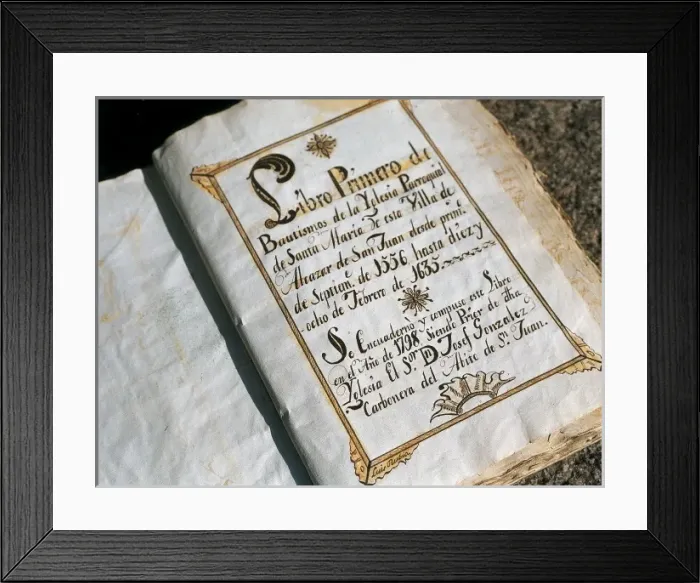 Libro Primero de
Bautismos de la Yglesia Parroquial
de Santa Maria de esta Villa de
Alcazar de San Juan desde prim.º
de Sepbre. de 1556 hasta diez y
ocho de Febrero de 1635
Se Encuaderno y compuso este Libro
en el Año de 1798 Siendo Prior de dha
Yglesia El Sor. D. Josef Gonzalez
Carbonera del Abito de Sn. Juan.